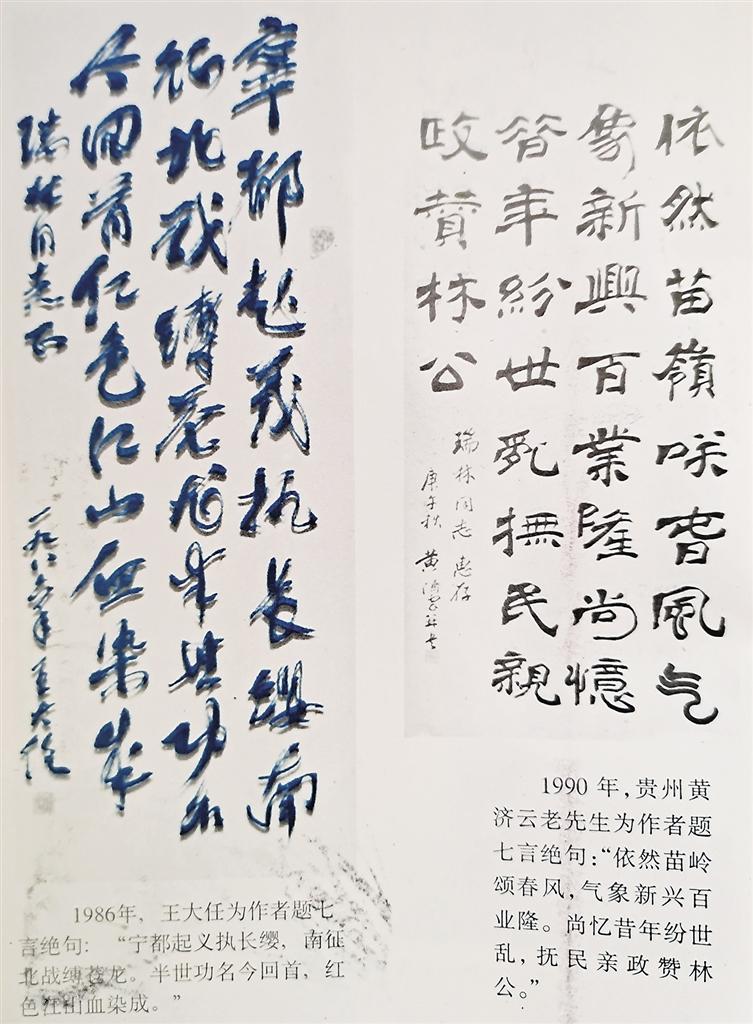 寧都起義执長纓南
征北战縛苍龙半世功名
今回首红色江山血染成
瑞林同志正
一九八六年 王大任
1986年，王大任为作者题七
言绝句：“宁都起义执长缨，南征
北战缚苍龙。半世功名今回首，红
色江山血染成。”
依然苗嶺咲旾風气
象新興百業隆尚憶
昔年紛世亂撫民親
政贊林公
瑞林同志 惠存
庚午秋 黄济云并书
1990年，贵州黄
济云老先生为作者题
七言绝句：“依然苗岭
颂春风，气象新兴百
业隆。尚忆昔年纷世
乱，抚民亲政赞林
公。”